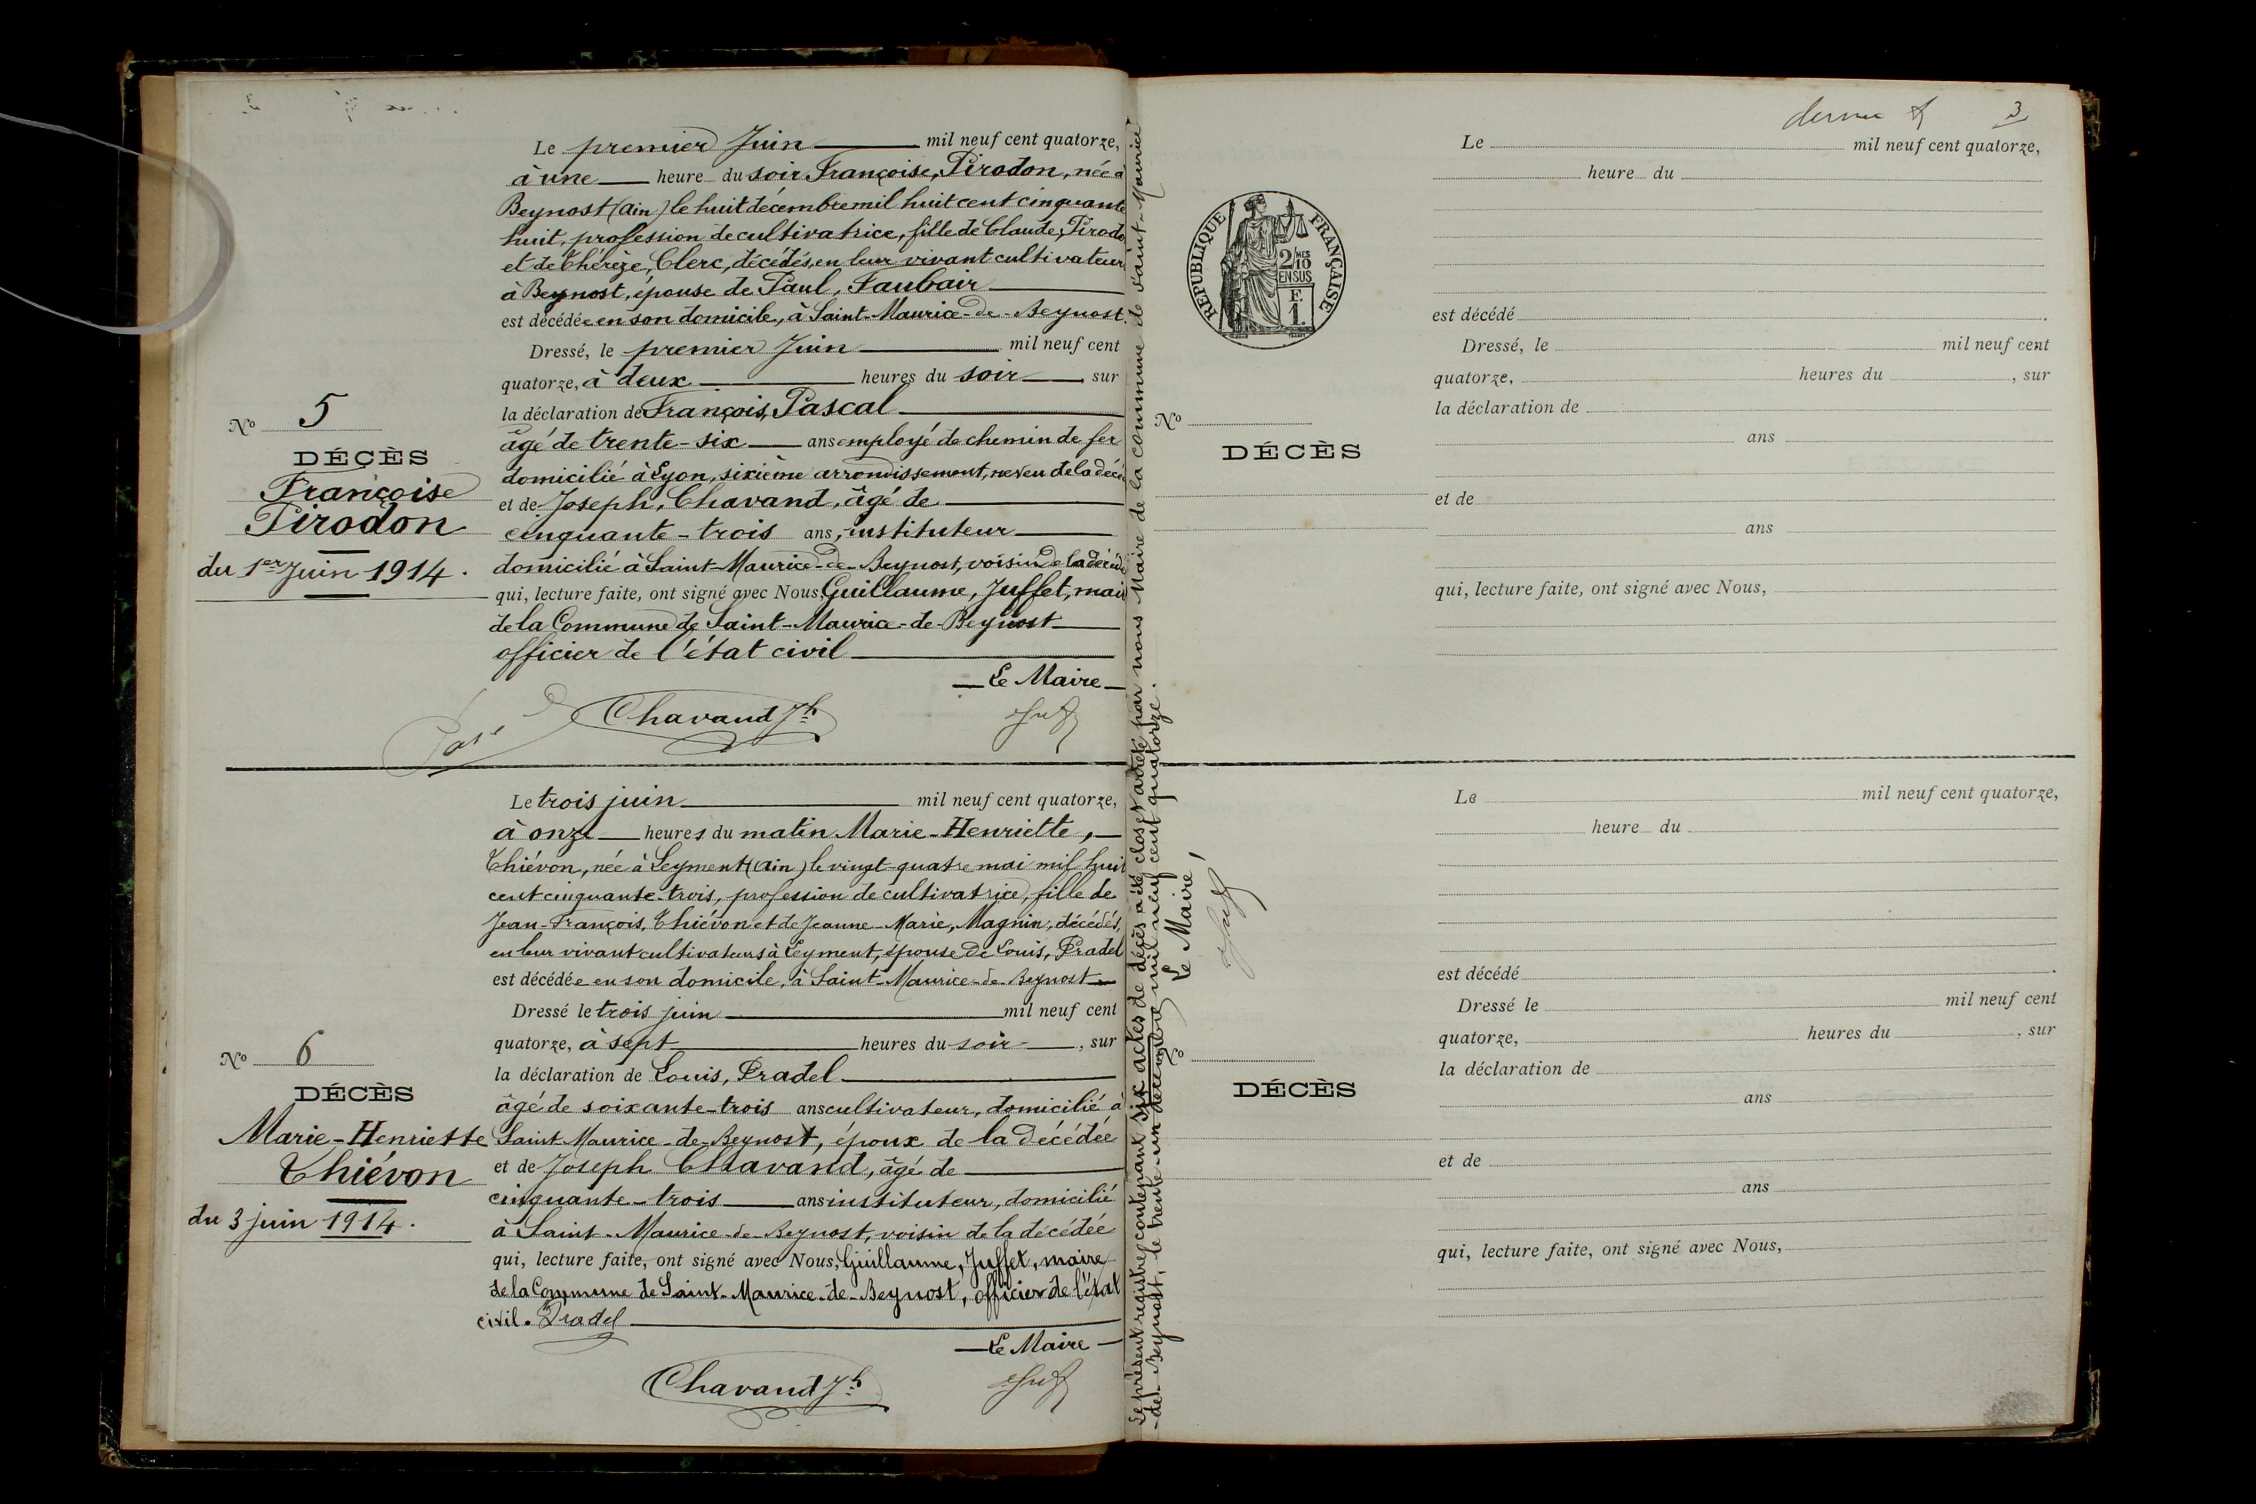 Le premier Juin mil neuf cent quatorze,
à une heure du soir Françoise, Pirodon, née à
Beynost (Ain) le huit décembre mil huit cent cinquante
huit, profession de cultivatrice, fille de Claude, Pirodo
et de Thérèze, Clerc, décédés, en leur vivant cultivateurs
à Beynost, épouse de Paul, Faubair
est décédée en son domicile, à Saint-Maurice-de-Beynost.
Dressé, le premier Juin mil neuf cent
quatorze, à deux heures du soir, sur
la déclaration de François, Pascal
âgé de trente-six ans employé de chemin de fer
domicilié à Lyon, sixième arrondissement, neveu de la décé
et de Joseph, Chavand, âgé de
cinquante-trois ans, instituteur
domicilié à Saint-Maurice-de-Beynost, voisin de la décédé
qui, lecture faite, ont signé avec Nous, Guillaume, Juffet, mair
de la Commune de Saint-Maurice-de-Beynost
officier de l'état civil
Le Maire
Chavand Jh
No 5
DÉCÈS
Françoise
Pirodon
du 1er Juin 1914.
Le trois juin mil neuf cent quatorze,
à onze heures du matin Marie-Henriette,
Thiévon, née à Leyment (Ain) le vingt-quatre mai mil huit
cent cinquante-trois, profession de cultivatrice, fille de
Jean-François, Thiévon et de Jeanne-Marie, Magnin, décédés,
en leur vivant cultivateurs à Leyment, épouse de Louis, Pradel
est décédée en son domicile, à Saint-Maurice-de-Beynost
Dressé le trois juin mil neuf cent
quatorze, à sept heures du soir, sur
la déclaration de Louis, Pradel
âgé de soixante-trois ans cultivateur, domicilié à
Saint-Maurice-de-Beynost, époux de la décédée
et de Joseph Chavand, âgé de
cinquante-trois ans instituteur, domicilié
à Saint-Maurice-de-Beynost, voisin de la décédée
qui, lecture faite, ont signé avec Nous, Guillaume, Juffet, maire
de la Commune de Saint-Maurice-de-Beynost, officier de l'état
civil. Pradel
Le Maire
Chavand Jh
No 6
DÉCÈS
Marie-Henriette
Thiévon
du 3 juin 1914.
Le présent registre contenant six actes de décès a été clos et arrêté par nous Maire de la commune de Saint-Maurice
-de-Beynost, le trente-un décembre mil neuf cent quatorze.
Le Maire,
3
REPUBLIQUE FRANÇAISE
2/10 MES
EN SUS
F.
1.
Le mil neuf cent quatorze,
heure du
est décédé .
Dressé, le mil neuf cent
quatorze, heures du , sur
la déclaration de
ans
et de
ans
qui, lecture faite, ont signé avec Nous,
No
DÉCÈS
Le mil neuf cent quatorze,
heure du
est décédé .
Dressé le mil neuf cent
quatorze, heures du , sur
la déclaration de
ans
et de
ans
qui, lecture faite, ont signé avec Nous,
No
DÉCÈS